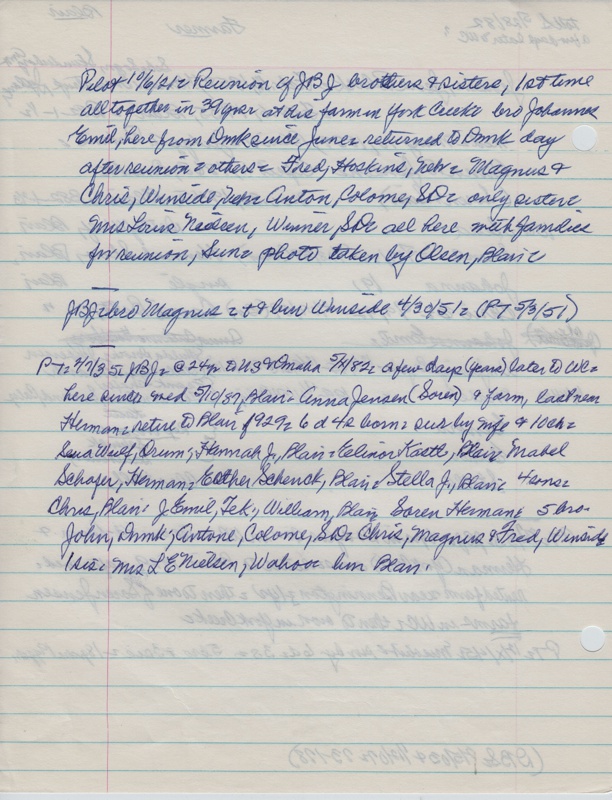 Pilot 10/6/21 = Reunion of JBJ brothers & sisters, 1st time
all together in 39 years at his farm in York Creek = bro Johannes
Emil, here from Dmk since June = returned to Dmk day
after reunion = others = Fred, Hoskins, Neb = Magnus &
Chris, Winside, Neb = Anton, Colome, SD = only sister =
Mrs Louis Nielsen, Winner, SD = all here with families
for reunion, Sun = photo taken by Olsen, Blair =
JBJ = bro Magnus = + & bur Winside 4/30/51 = (PT 5/3/51)
PT = JBJ = @ 24 yr to US & Omaha = a few days (years) later to WC =
here since = wed 5/10/87, Blair = Anna Jensen (Soren) & farm, last near
Herman = retire to Blair 1929 = 6 d 4 s born = sur by wife & 10 ch =
Lena Wulf, Orum; Hannah J, Blair = Elinor, Blair; Mabel
Schafer, Herman = Esther Schenck, Blair = Stella J, Blair = 4 sons =
Chris, Blair; J Emil, Tek; William, Blair Soren Herman = 5 bro =
John, Dmk; Antone, Colome, SD = Chris, Magnus & Fred, Winside
1 sis = Mrs L E Nielsen, Wahoo = bur Blair.